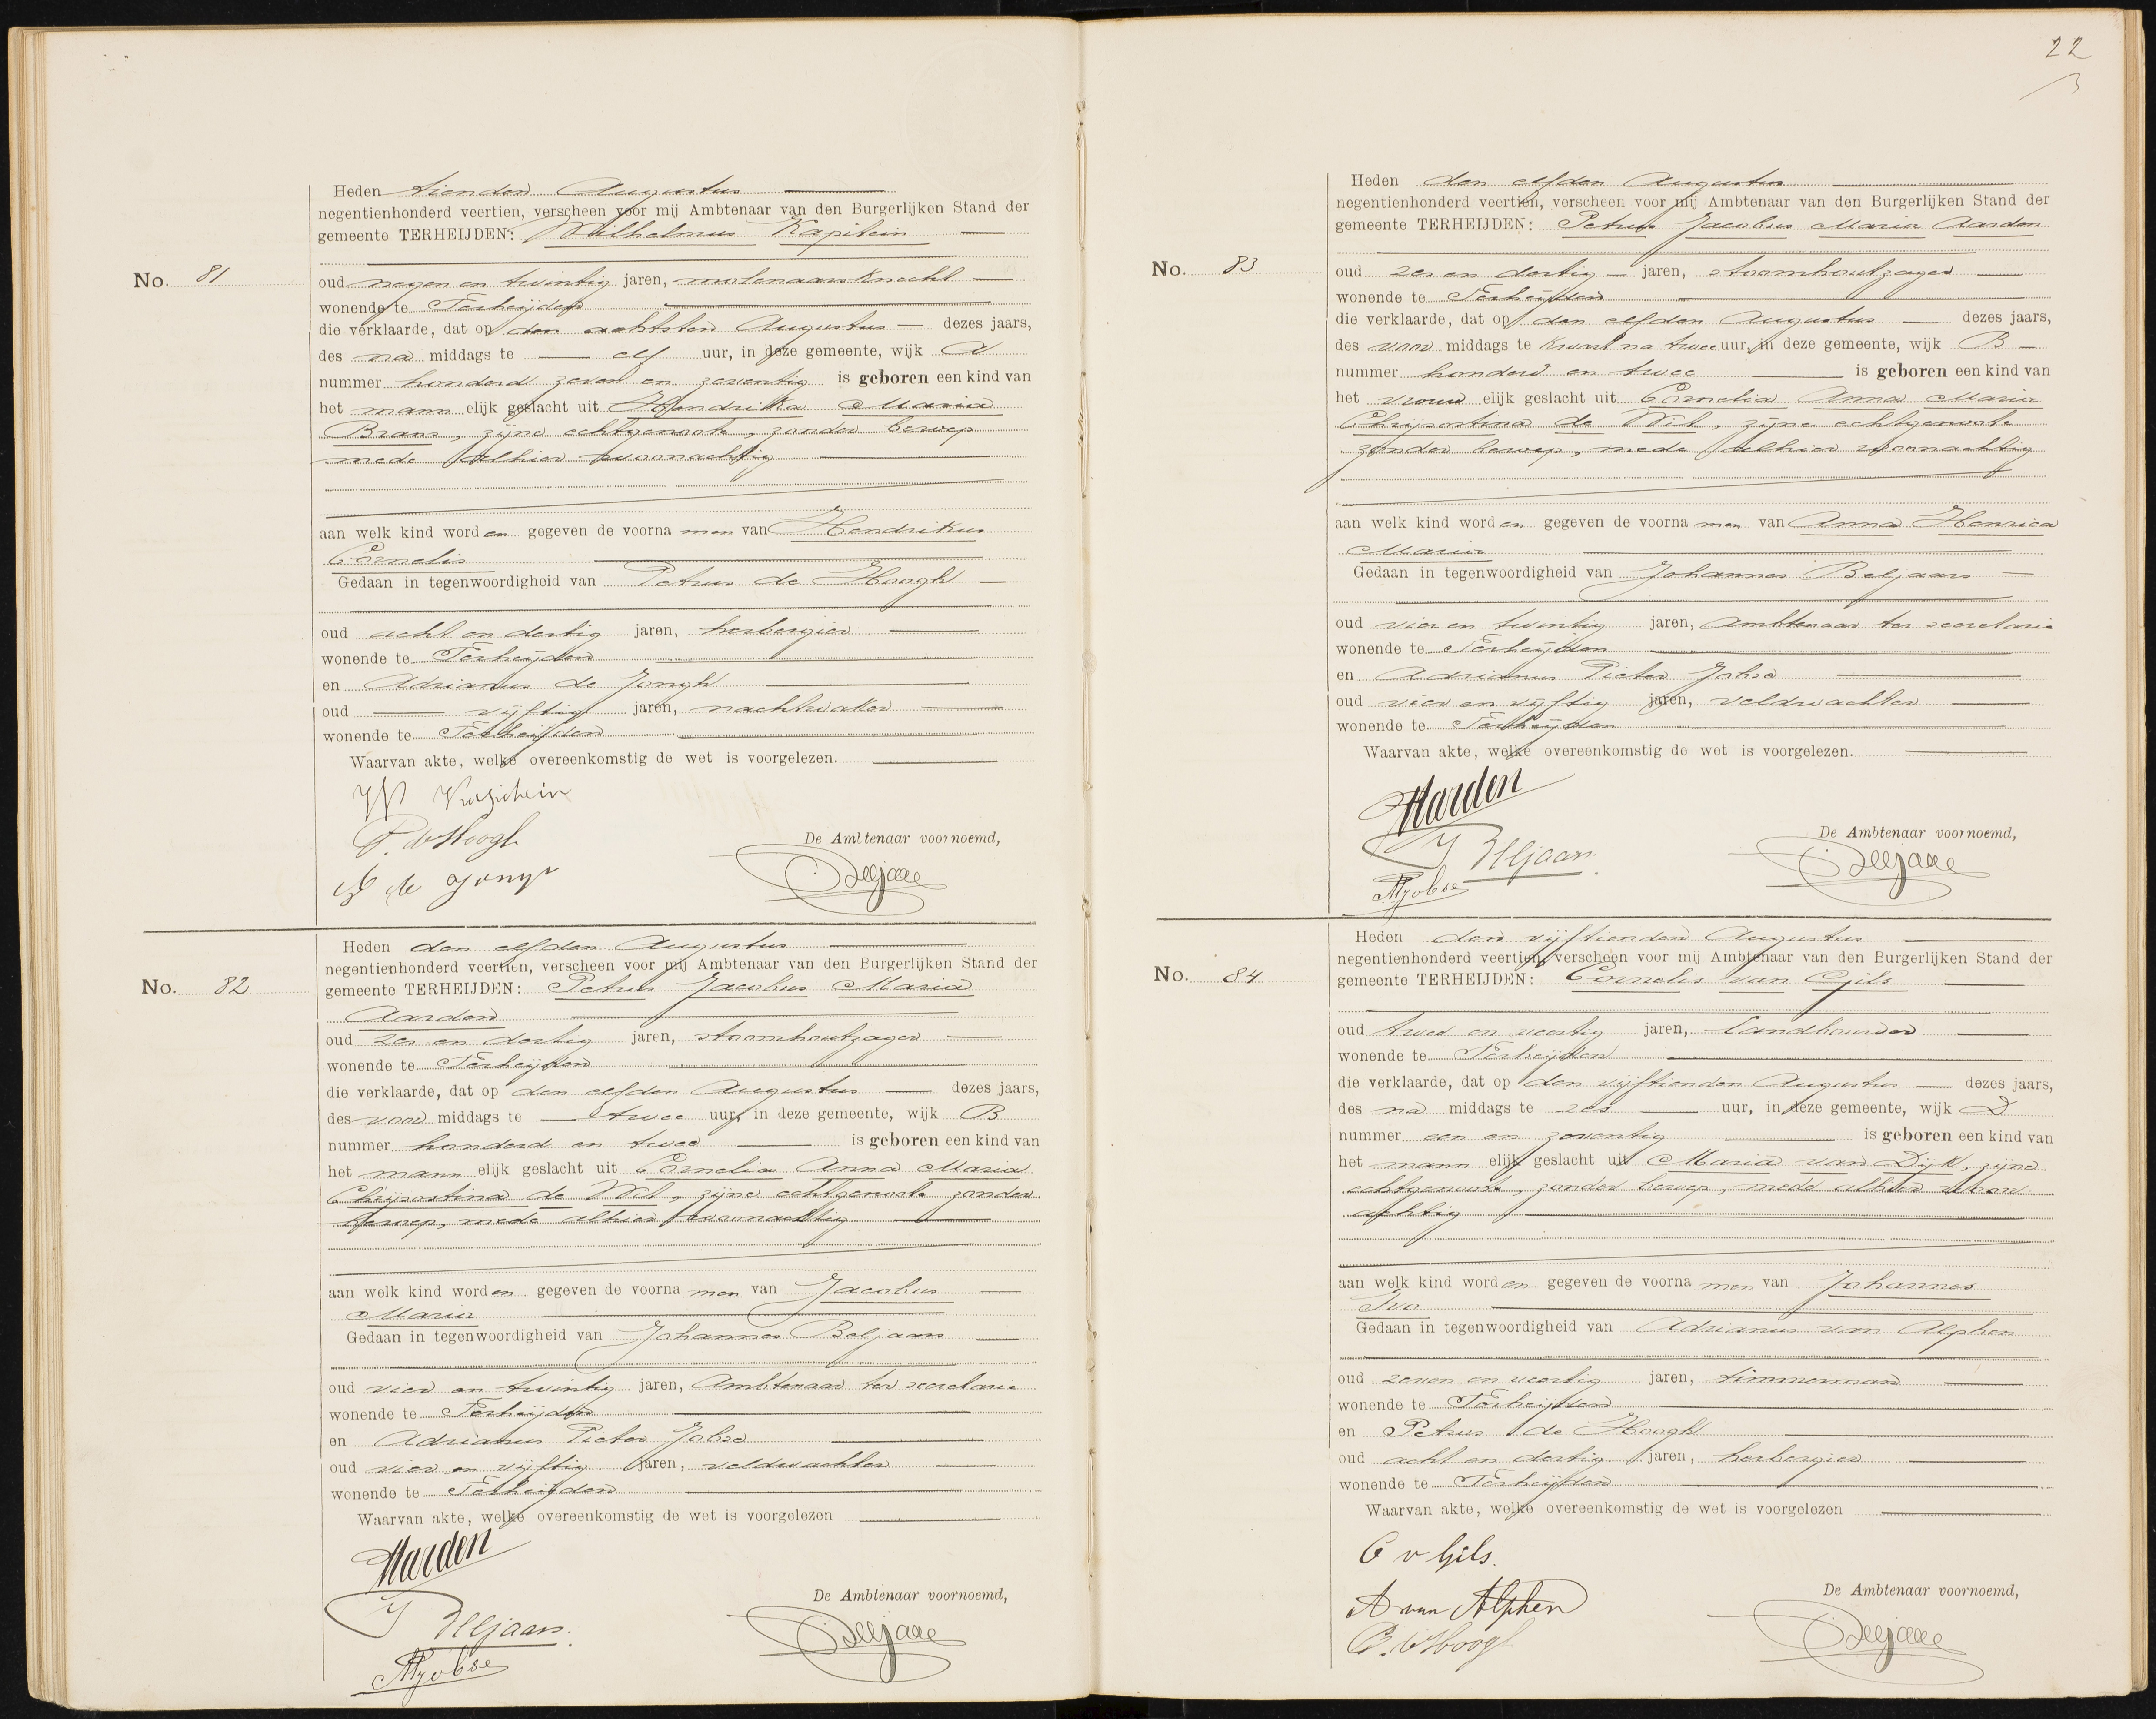 No. 81
Heden tienden Augustus
negentienhonderd veertien, verscheen voor mij Ambtenaar van den Burgerlijken Stand der
gemeente TERHEIJDEN: Wilhelmus Kapitein
oud negen en twintig jaren, molenaarsknecht
wonende te Terheijden
die verklaarde, dat op den achtsten Augustus dezes jaars,
des na middags te elf uur, in deze gemeente, wijk A
nummer honderd zeven en zeventig is geboren een kind van
het mann elijk geslacht uit Hendrika Maria
Brans, zijne echtgenoote, zonder beroep
mede alhier woonachtig
aan welk kind worden gegeven de voorna men van Hendrikus
Cornelis
Gedaan in tegenwoordigheid van Petrus de Hoogh
oud acht en dertig jaren, herbergier
wonende te Terheijden
en Adrianus de Jongh
oud vijftig jaren, nachtwaker
wonende te Terheijden
Waarvan akte, welke overeenkomstig de wet is voorgelezen.
W Kapitein
P. d Hoogh
De Ambtenaar voornoemd,
A de Jongh
No. 82
Heden den elfden Augustus
negentienhonderd veertien, verscheen voor mij Ambtenaar van den Burgerlijken Stand der
gemeente TERHEIJDEN: Petrus Jacobus Maria
Aarden
oud zes en dertig jaren, stoomhoutzager
wonende te Terheijden
die verklaarde, dat op den elfden Augustus dezes jaars,
des voor middags te twee uur, in deze gemeente, wijk B
nummer honderd en twee is geboren een kind van
het mann elijk geslacht uit Cornelia Anna Maria
Chrijsostina de Wit, zijne echtgenoote zonder
beroep, mede alhier woonachtig
aan welk kind worden gegeven de voorna men van Jacobus
Maria
Gedaan in tegenwoordigheid van Johannes Beljaars
oud vier en twintig jaren, Ambtenaar ter secretarie
wonende te Terheijden
en Adrianus Pieter Jobse
oud vier en vijftig jaren, veldwachter
wonende te Terheijden
Waarvan akte, welke overeenkomstig de wet is voorgelezen
Aarden
De Ambtenaar voornoemd,
J Beljaars.
APJobse
22
No. 83
Heden den elfden Augustus
negentienhonderd veertien, verscheen voor mij Ambtenaar van den Burgerlijken Stand der
gemeente TERHEIJDEN: Petrus Jacobus Maria Aarden
oud zes en dertig jaren, stoomhoutzager
wonende te Terheijden
die verklaarde, dat op den elfden Augustus dezes jaars,
des voor middags te kwart na twee uur, in deze gemeente, wijk B
nummer honderd en twee is geboren een kind van
het vrouw elijk geslacht uit Cornelia Anna Maria
Chrysostina de Wit, zijne echtgenoote
zonder beroep, mede alhier woonachtig
aan welk kind worden gegeven de voorna men van Anna Henrica
Maria
Gedaan in tegenwoordigheid van Johannes Beljaars
oud vier en twintig jaren, Ambtenaar ter secretarie
wonende te Terheijden
en Adrianus Pieter Jobse
oud vier en vijftig jaren, veldwachter
wonende te Terheijden
Waarvan akte, welke overeenkomstig de wet is voorgelezen.
Aarden
De Ambtenaar voornoemd,
J Beljaars.
APJobse
No. 84
Heden den vijftienden Augustus
negentienhonderd veertien, verscheen voor mij Ambtenaar van den Burgerlijken Stand der
gemeente TERHEIJDEN: Cornelis van Gils
oud twee en veertig jaren, landbouwer
wonende te Terheijden
die verklaarde, dat op den vijftienden Augustus dezes jaars,
des na middags te zes uur, in deze gemeente, wijk D
nummer een en zeventig is geboren een kind van
het mann elijk geslacht uit Maria van Dijk, zijne
echtgenoote, zonder beroep, mede alhier woon
achtig
aan welk kind worden gegeven de voorna men van Johannes
Ivo
Gedaan in tegenwoordigheid van Adrianus van Alphen
oud zeven en veertig jaren, timmerman
wonende te Terheijden
en Petrus de Hoogh
oud acht en dertig jaren, herbergier
wonende te Terheijden
Waarvan akte, welke overeenkomstig de wet is voorgelezen
C v Gils.
De Ambtenaar voornoemd,
A van Alphen
P. d Hoogh